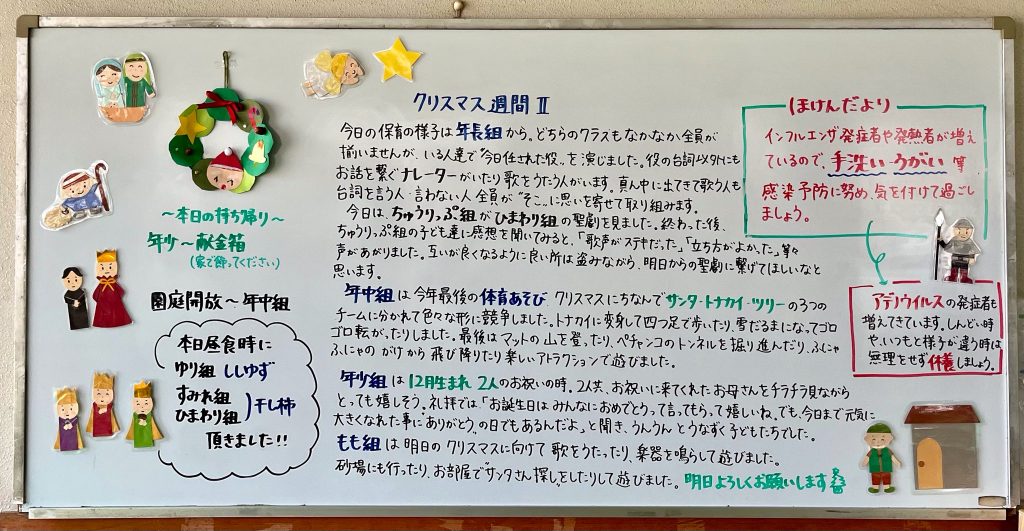 クリスマス週間Ⅱ
今日の保育の様子は年長組から。どちらのクラスもなかなか全員が
揃いませんが、いる人達で"今日任された役"を演じました。役の台詞以外にも
お話を繋ぐナレーターがいたり歌をうたう人がいます。真ん中に出てきて歌う人も
台詞を言う人・言わない人 全員が"そこ"に思いを寄せて取り組みます。
今日は、ちゅうりっぷ組がひまわり組の聖劇を見ました。終わった後、
ちゅうりっぷ組の子ども達に感想を聞いてみると、「歌声がステキだった」「立ち方がよかった」等々
声があがりました。互いが良くなるように良い所は盗みながら、明日からの聖劇に繋げてほしいなと
思います。
年中組は今年最後の体育あそび。クリスマスにちなんでサンタ・トナカイ・ツリーの3つの
チームに分かれて色々な形に競争しました。トナカイに変身して四つ足で歩いたり、雪だるまになってゴロ
ゴロ転がったりしました。最後はマットの山を登ったり、ペチャンコのトンネルを掘り進んだり、ふにゃ
ふにゃのがけから飛び降りたり楽しいアトラクションで遊びました。
年少組は12月生まれ2人のお祝いの時。2人共、お祝いに来てくれたお母さんをチラチラ見ながら
とっても嬉しそう。礼拝では「お誕生日はみんなにおめでとうって言ってもらって嬉しいね。でも、今日まで元気に
大きくなれた事にありがとう。の日でもあるんだよ。」と聞き、うんうんとうなずく子どもたちでした。
もも組は明日のクリスマスに向けて歌をうたったり、楽器を鳴らして遊びました。
砂場にも行ったり、お部屋で"サンタさん探し"をしたりして遊びました。明日よろしくお願いします
〜本日の持ち帰り〜
年少〜献金箱
(家で飾ってください)
園庭開放〜年中組
本日昼食時に
ゆり組 ししゆず
すみれ組
ひまわり組 )干し柿
頂きました!!
ほけんだより
インフルエンザ発症者や発熱者が増え
ているので、手洗い・うがい等
感染予防に努め、気を付けて過ごし
ましょう。
アデノウイルスの発症者も
増えてきています。しんどい時
や、いつもと様子が違う時は
無理をせず休養しましょう。